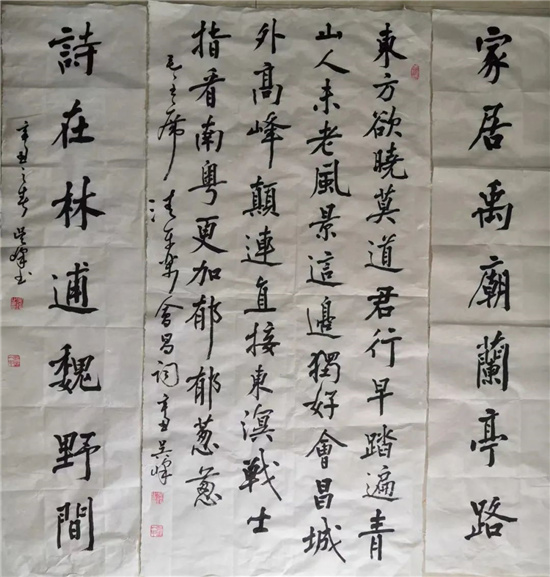 家居禹廟蘭亭路
東方欲曉莫道君行早踏遍青
山人未老風景這邊獨好會昌城
外高峰顛連直接東溟戰士
指看南粵更加郁郁蔥蔥
毛主席清平樂會昌詞辛丑吴峰
詩在林逋魏野間
辛丑之春吴峰书